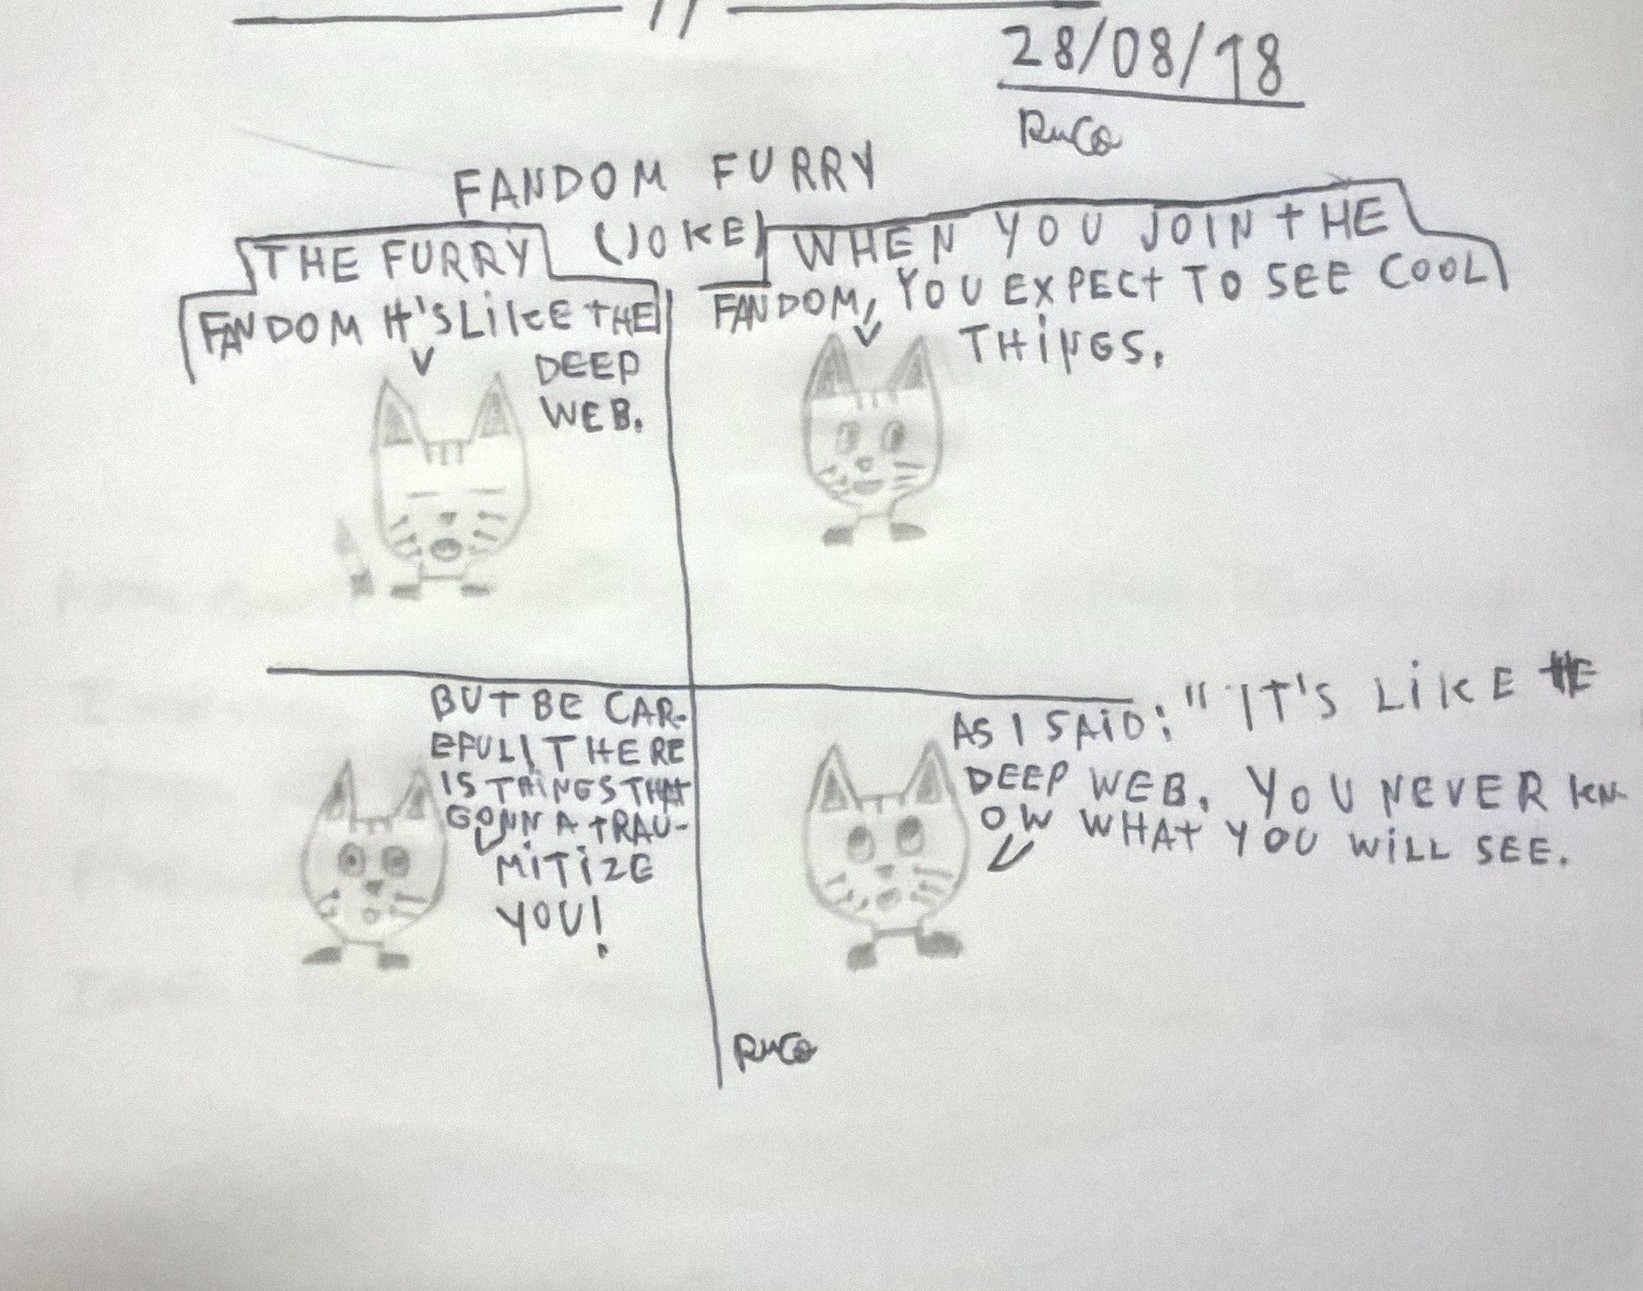 28/08/18
RuCo
FANDOM FURRY
(JOKE)
THE FURRY
FANDOM It'S LiKE tHE
DEEP
WEB.
WHEN YOU JOIN tHE
FANDOM, YOU EXPECt TO SEE COOL
THiNGS.
BUT BE CAR-
EFUL! THERE
IS THiNGS THAt
GONNA tRAU-
MiTiZE
YOU!
AS I SAiD: "IT'S LiKE tHE
DEEP WEB. YOU NEVER KN-
OW WHAt YOU WiLL SEE.
RuCo